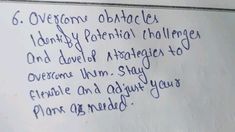 6. Overcome obstacles
Identify Potential challenges
and develop strategies to
overcome them. Stay
flexible and adjust your
plans as needed.